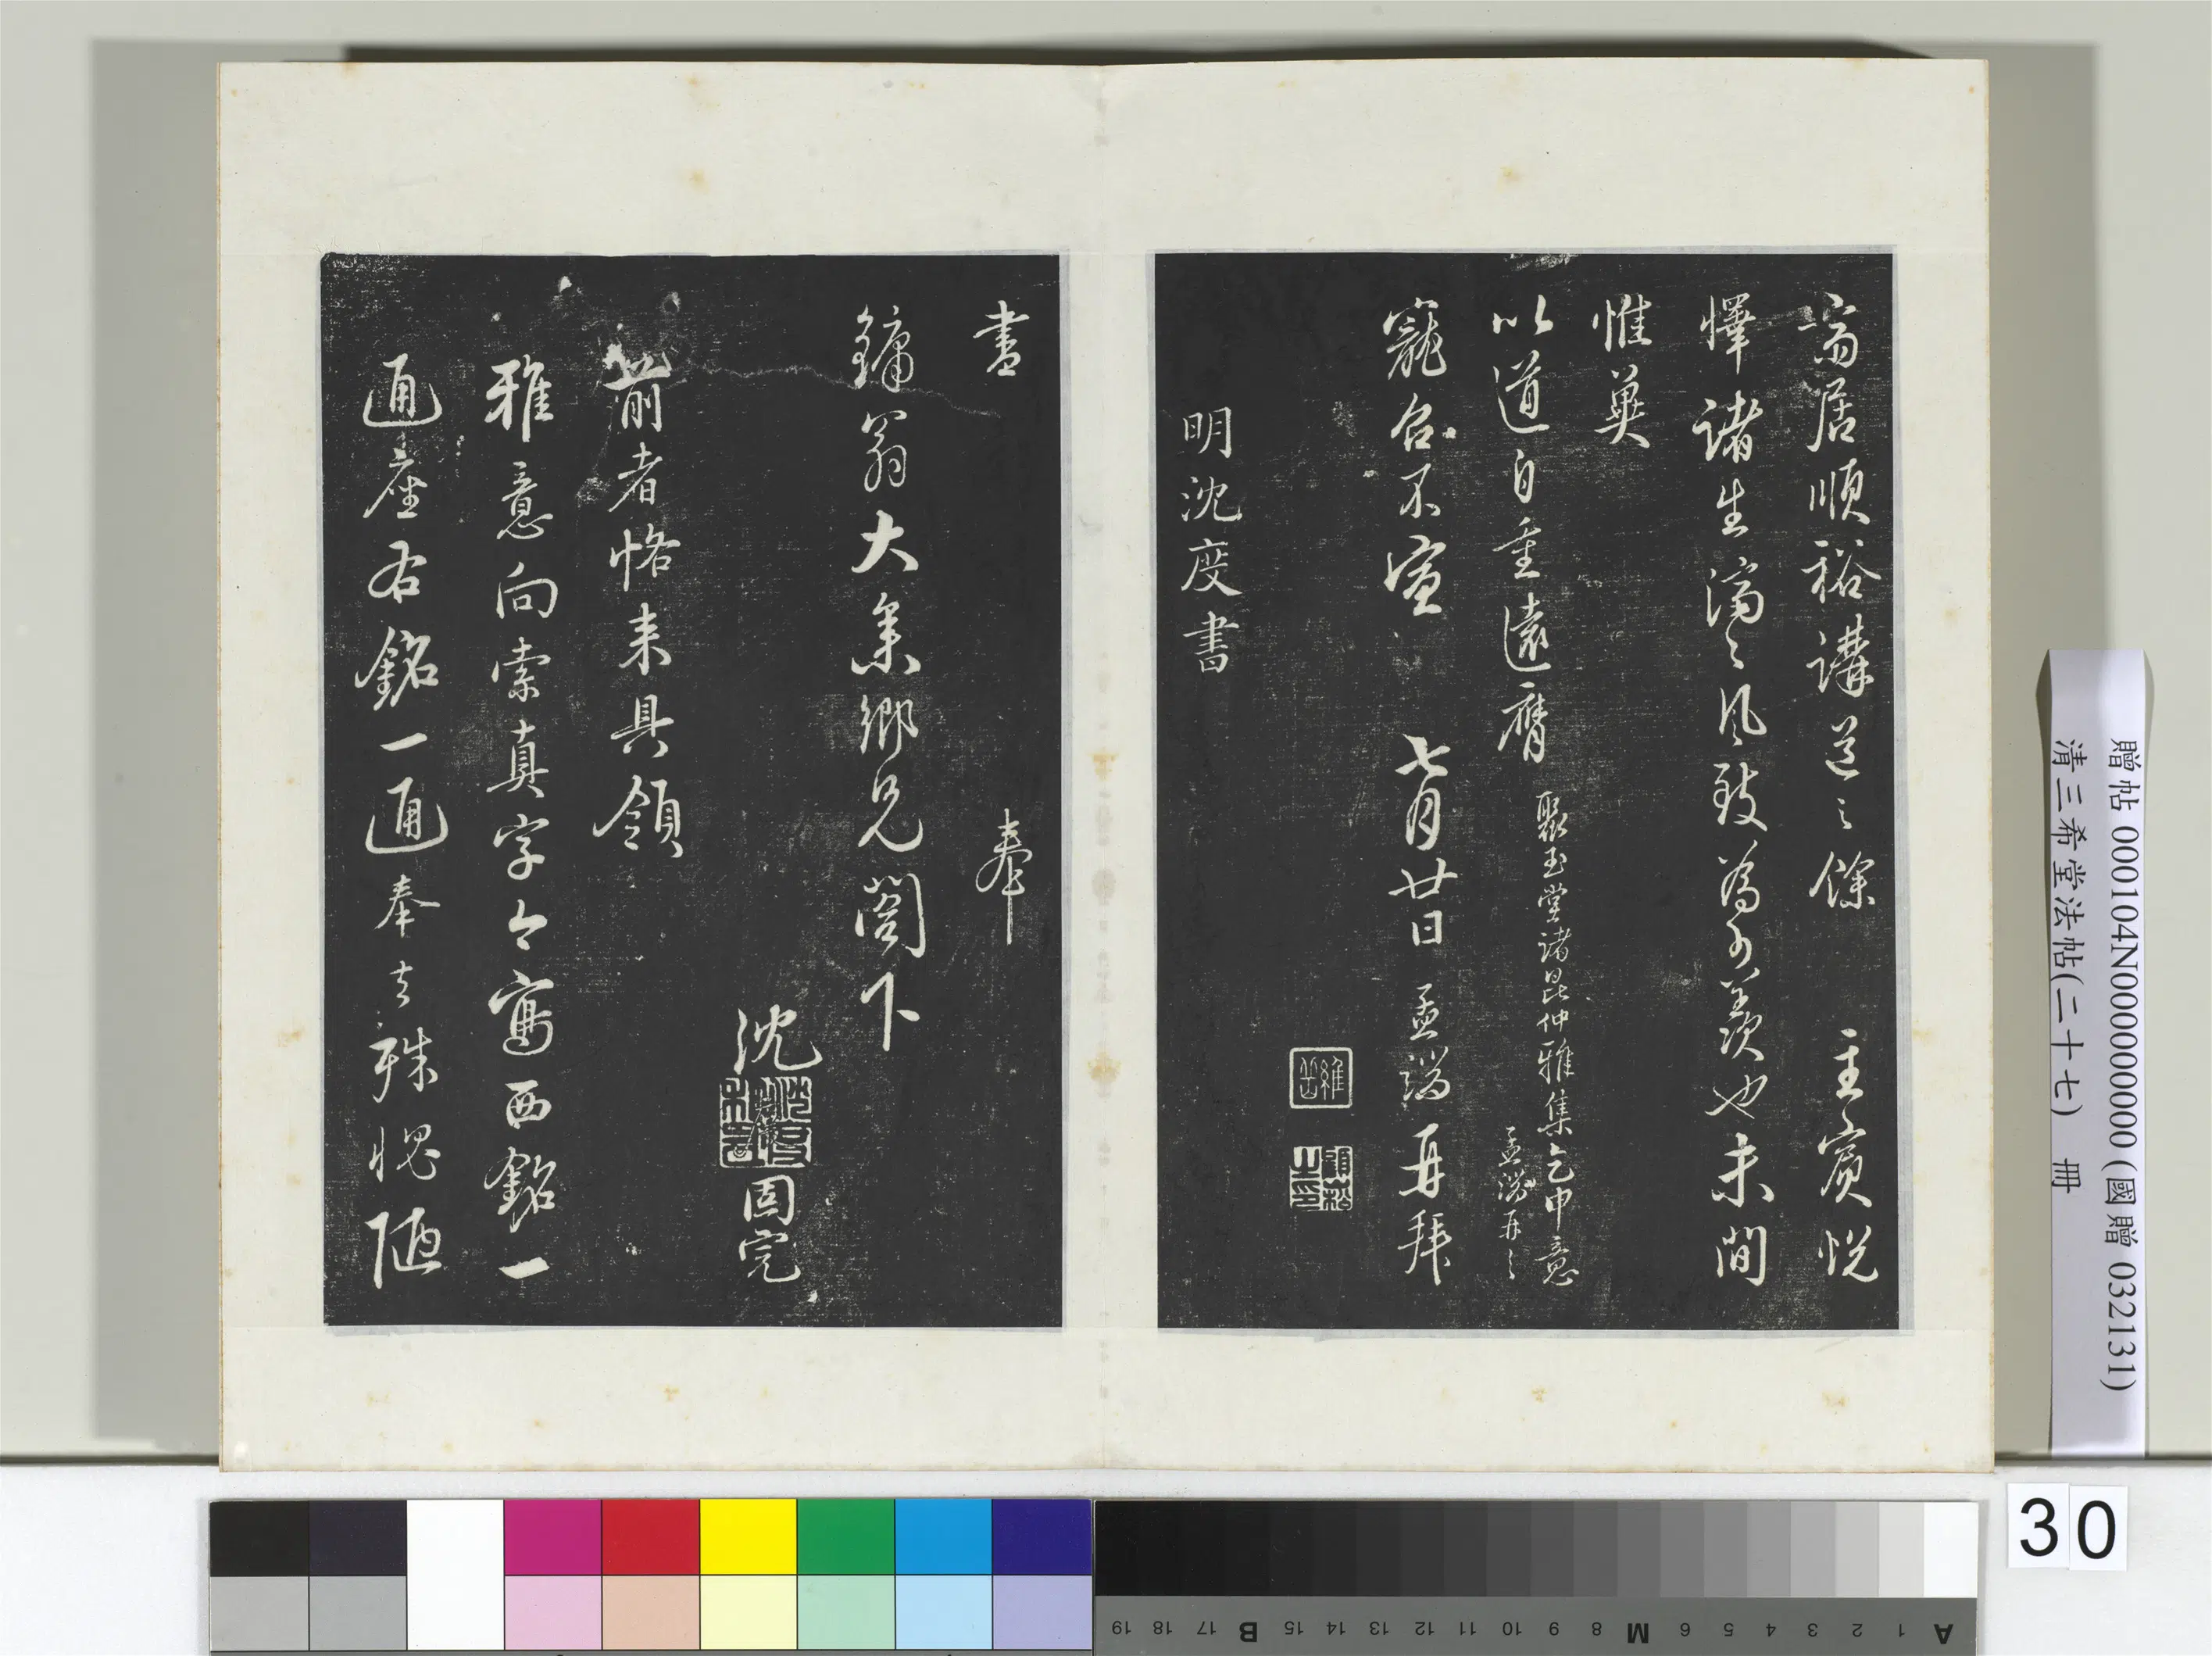 齋居順裕講道之餘 主賓悅
懌諸生濟々風致為可羨也未間
惟冀
以道自重遠膺
聚玉堂諸昆仲雅集乞申意
孟端再々
寵召不宣 七月廿日 孟端再拜
明沈度書
書 奉
鏞翁大參鄉兄閣下
沈 固完
前者恪來具領
雅意向索真字今寫西銘一
通座右銘一通奉去殊愧陋
贈帖 000104N000000000 (國贈 032131)
清三希堂法帖(二十七) 冊
30
A 1 2 3 4 5 6 M 8 9 10 11 12 13 14 15 B 17 18 19